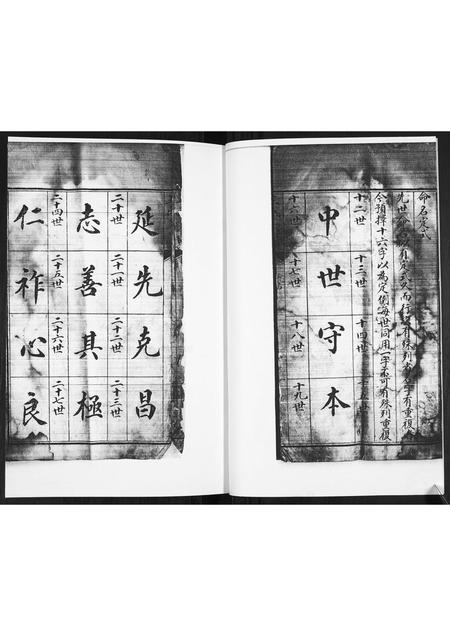 命名定式
先世 有定式久而行 殊列 字有重復
今預擇十六字以為定例每世同用一字不可有殊列重復
十二世 十三世 十四世
中 世 守 本
十六世 十七世 十八世 十九世
延 先 克 昌
二十世 二十一世 二十二世 二十三世
志 善 其 極
二十四世 二十五世 二十六世 二十七世
仁 祚 心 良